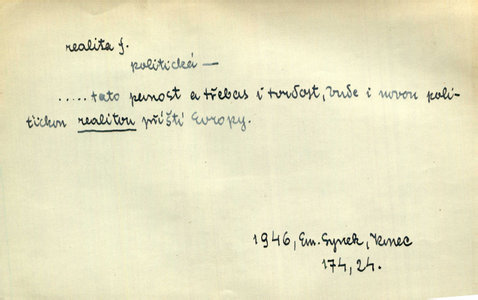 realita f.
politická —
..... tato pevnost a třebas i tvrdost, bude i novou poli-
tickou realitou příští Evropy.
1946, Em. Synek, Konec
174, 24.